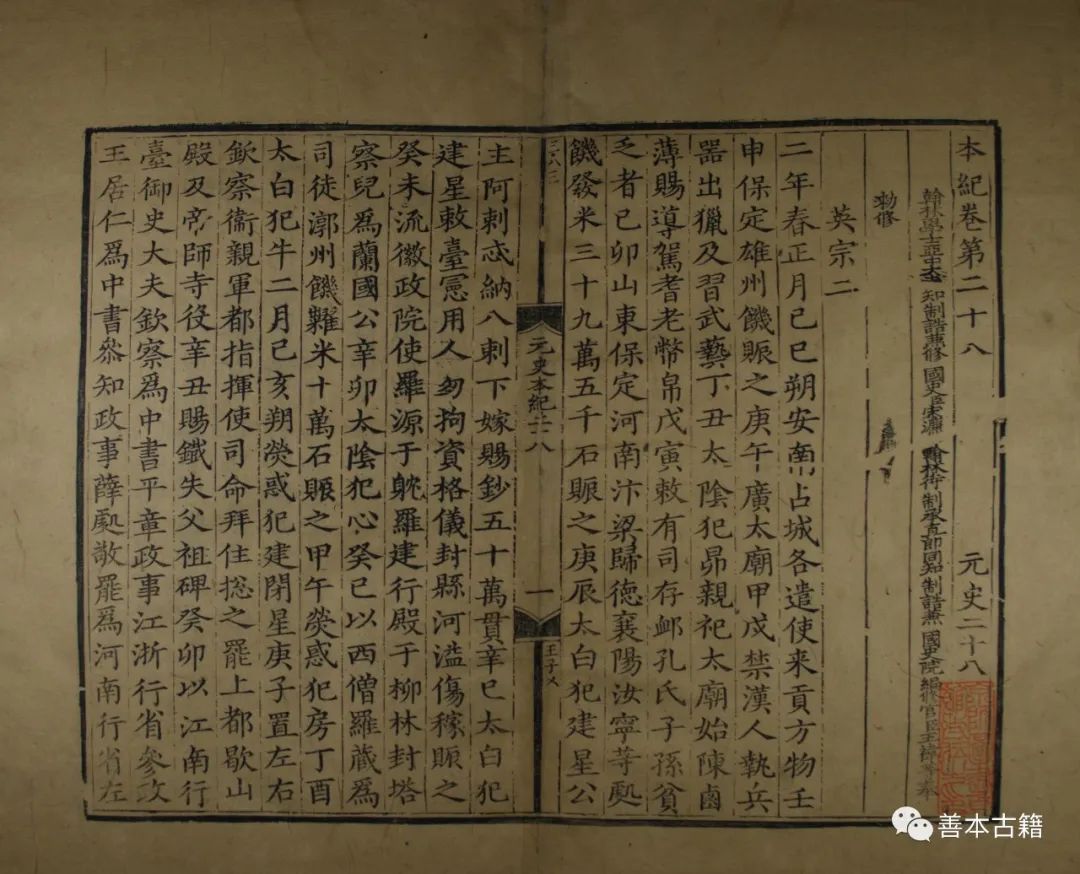 本紀卷第二十八 元史二十八
翰林學士亞中大夫知制誥兼修國史臣宋濂 翰林待制承直郎同知制誥兼國史院編修官臣王禕等奉
勑修
英宗二
二年春正月己巳朔安南占城各遣使來貢方物壬
申保定雄州饑賑之庚午廣太廟甲戌禁漢人執兵
器出獵及習武藝丁丑太陰犯昴親祀太廟始陳鹵
薄賜導駕耆老幣帛戊寅敕有司存卹孔氏子孫貧
乏者己卯山東保定河南汴梁歸德襄陽汝寧等處
饑發米三十九萬五千石賑之庚辰太白犯建星公
元史本紀二十八
一
主阿剌忒納八剌下嫁賜鈔五十萬貫辛巳太白犯
建星敕臺憲用人勿拘資格儀封縣河溢傷稼賑之
癸未流徽政院使羅源于躭羅建行殿于柳林封塔
察兒爲蘭國公辛卯太陰犯心癸巳以西僧羅藏爲
司徒漷州饑糶米十萬石賑之甲午熒惑犯房丁酉
太白犯牛二月己亥朔熒惑犯建閉星庚子置左右
欽察衞親軍都指揮使司命拜住捴之罷上都歇山
殿及帝師寺役辛丑賜鐵失父祖碑癸卯以江南行
臺御史大夫欽察爲中書平章政事江浙行省參政
王居仁爲中書叅知政事薛處敬罷爲河南行省左
善本古籍